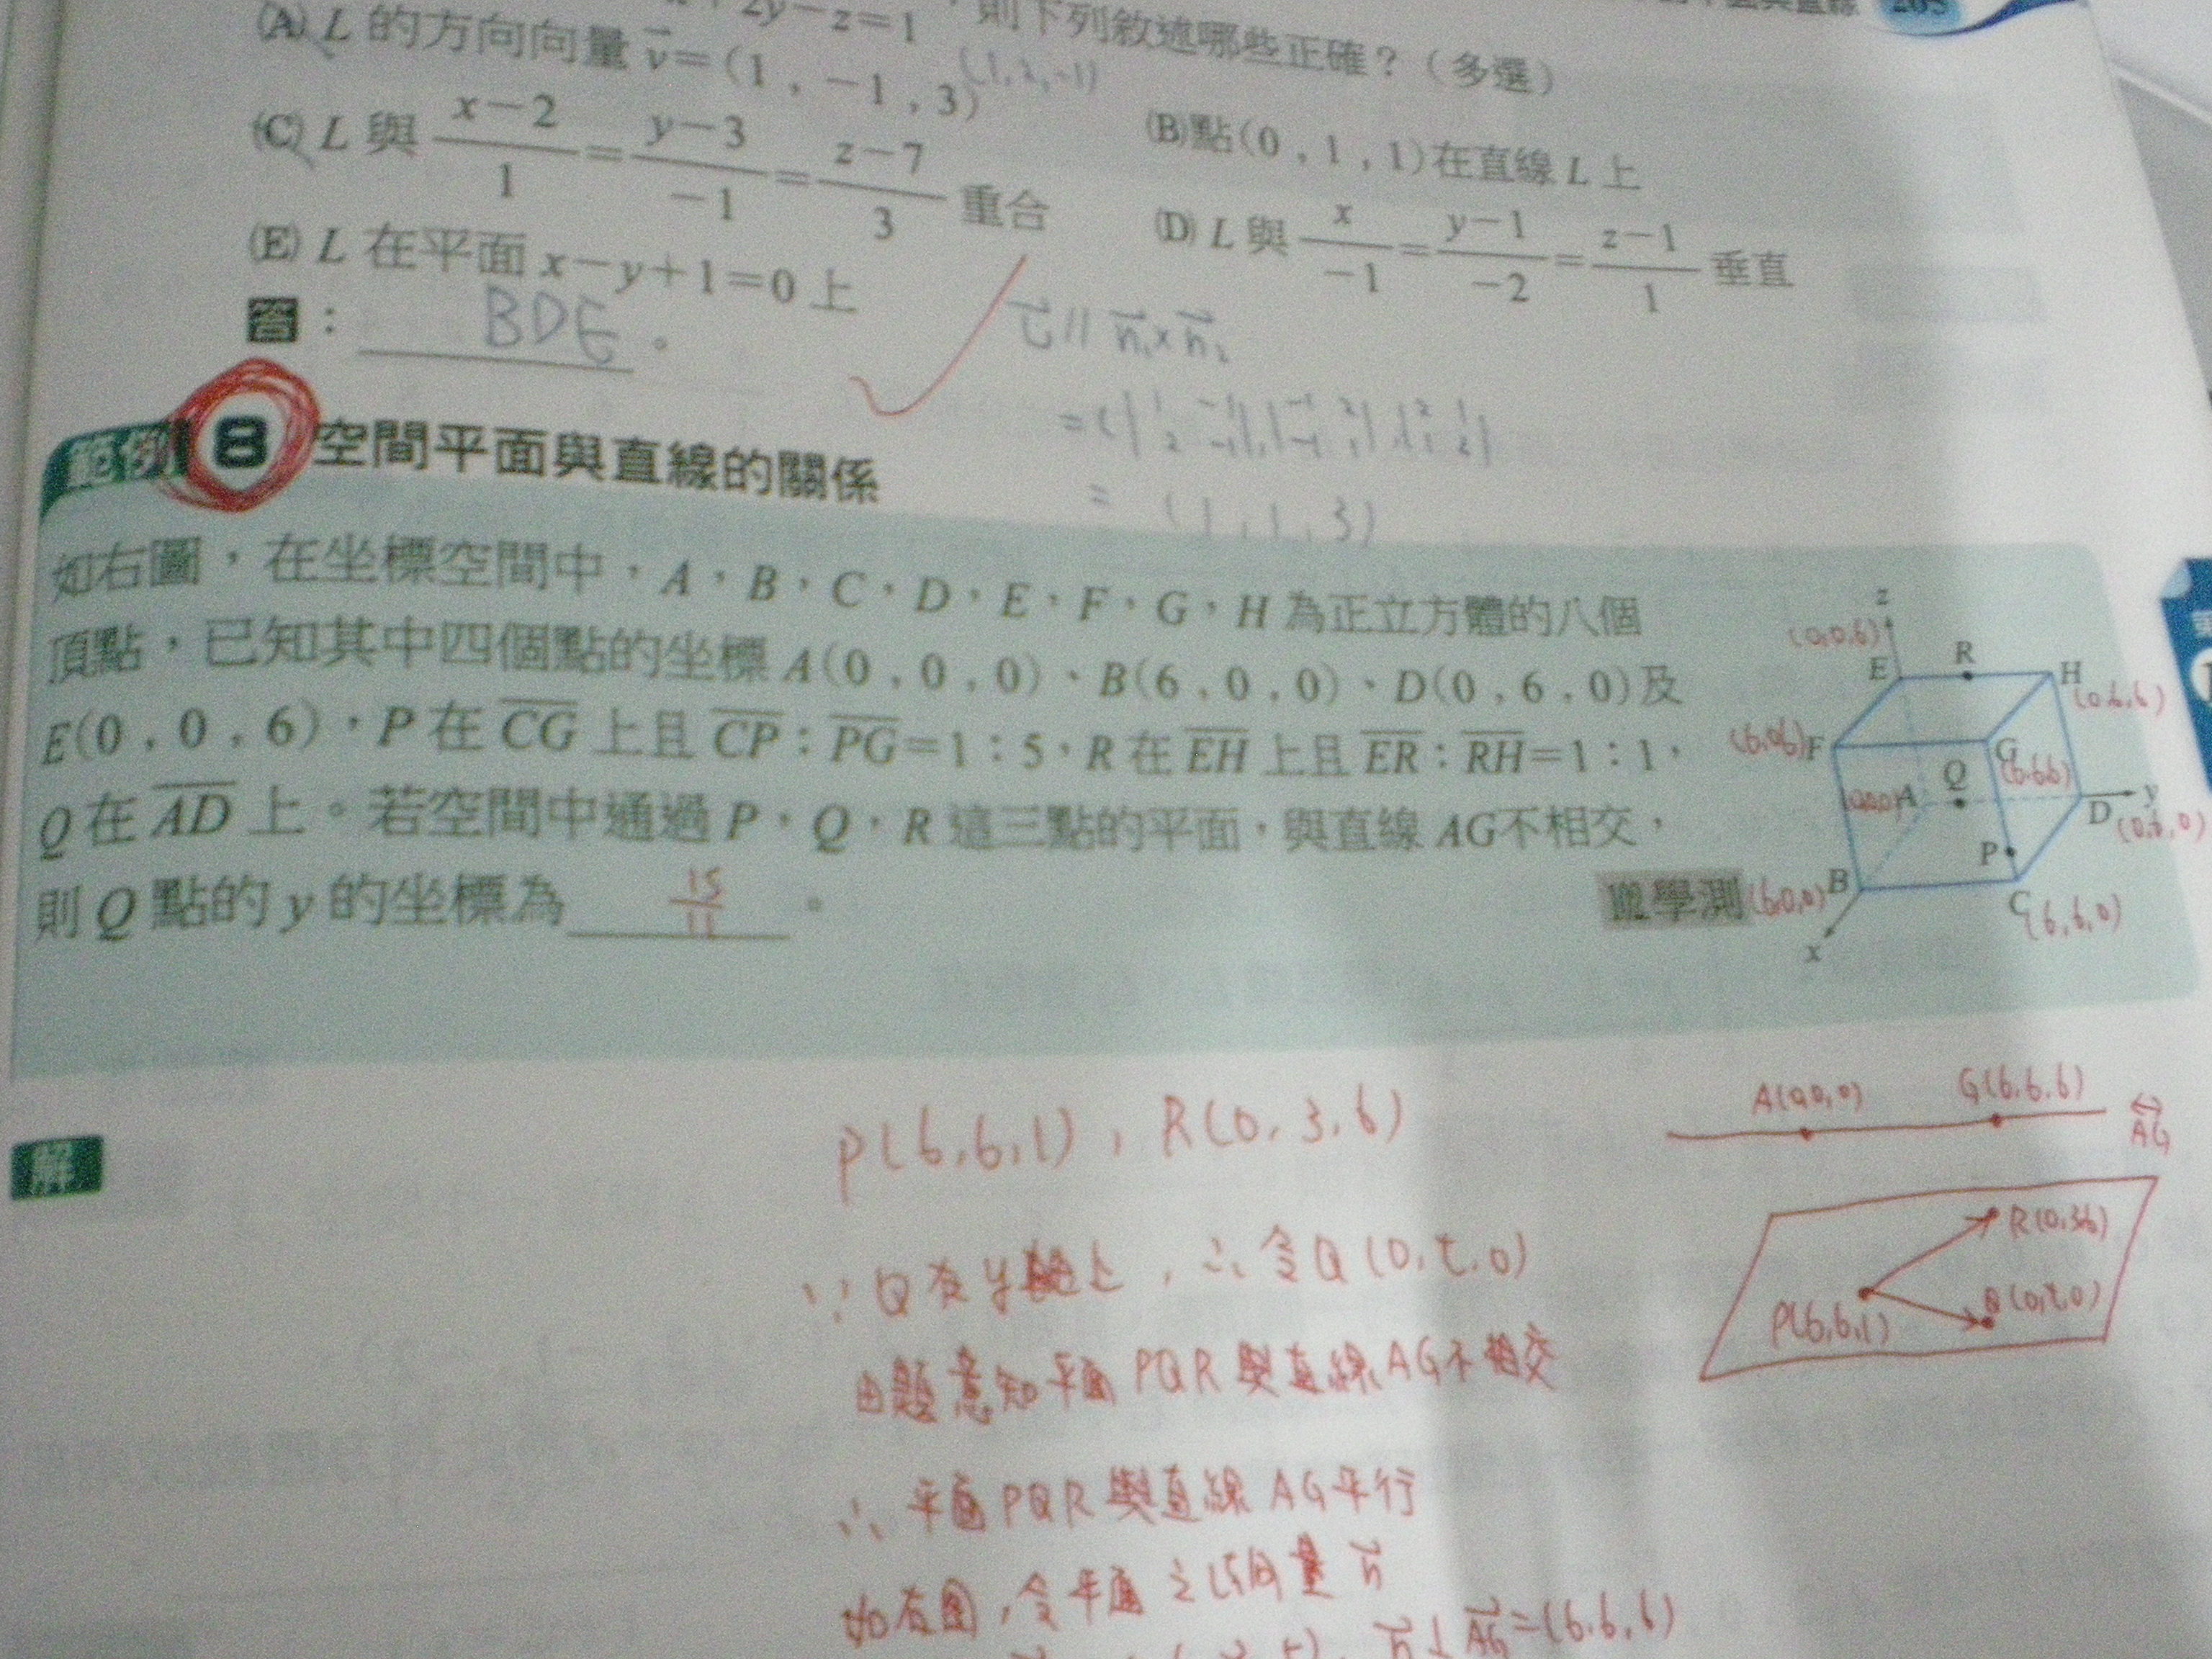 2y－z＝1，則下列敘述哪些正確？（多選）
(A) L 的方向向量 v⃗＝(1，－1，3) (1,2,-1)
(B)點(0，1，1)在直線 L 上
(C) L 與 x－2/1＝y－3/－1＝z－7/3 重合
(D) L 與 x/－1＝y－1/－2＝z－1/1 垂直
(E) L 在平面 x－y＋1＝0 上
答：BDE。
範例 8 空間平面與直線的關係
= (1,1,3)
如右圖，在坐標空間中，A，B，C，D，E，F，G，H 為正立方體的八個
頂點，已知其中四個點的坐標 A(0，0，0)、B(6，0，0)、D(0，6，0)及
E(0，0，6)，P 在 CG 上且 CP：PG＝1：5，R 在 EH 上且 ER：RH＝1：1，
Q 在 AD 上。若空間中通過 P，Q，R 這三點的平面，與直線 AG不相交，
則 Q 點的 y 的坐標為 15/11 。
學測
z
(0,0,6)
E R H (0,6,6)
(6,0,6) F G (6,6,6)
(0,0,0) A Q D y (0,6,0)
P
(6,0,0) B C (6,6,0)
x
解
P(6,6,1), R(0,3,6)
∵ Q在y軸上，∴令Q(0,t,0)
由題意知平面PQR與直線AG不相交
∴ 平面PQR與直線AG平行
如右圖,令平面之法向量 n⃗
n⃗⊥AG⃗=(6,6,6)
A(0,0,0) G(6,6,6) AG
R(0,3,6)
Q(0,t,0)
P(6,6,1)